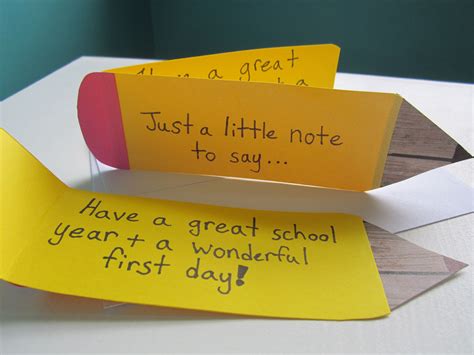 a great
Just a little note
to say...
Have a great school
year + a wonderful
first day!